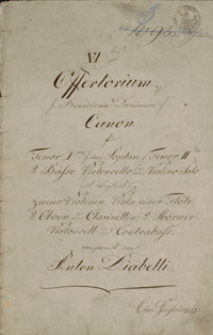 VI
Offertorium
Benedicam Dominum
Canon
für
Tenor I Sopran Tenor II
2 Bässe Violoncello oder Violino Solo
mit Begleitung
zweier Violinen Viola, einer Flöte,
2 Oboen oder Clarinetten 2 Hörner
Violoncell und Contrabass.
componirt von
Anton Diabelli